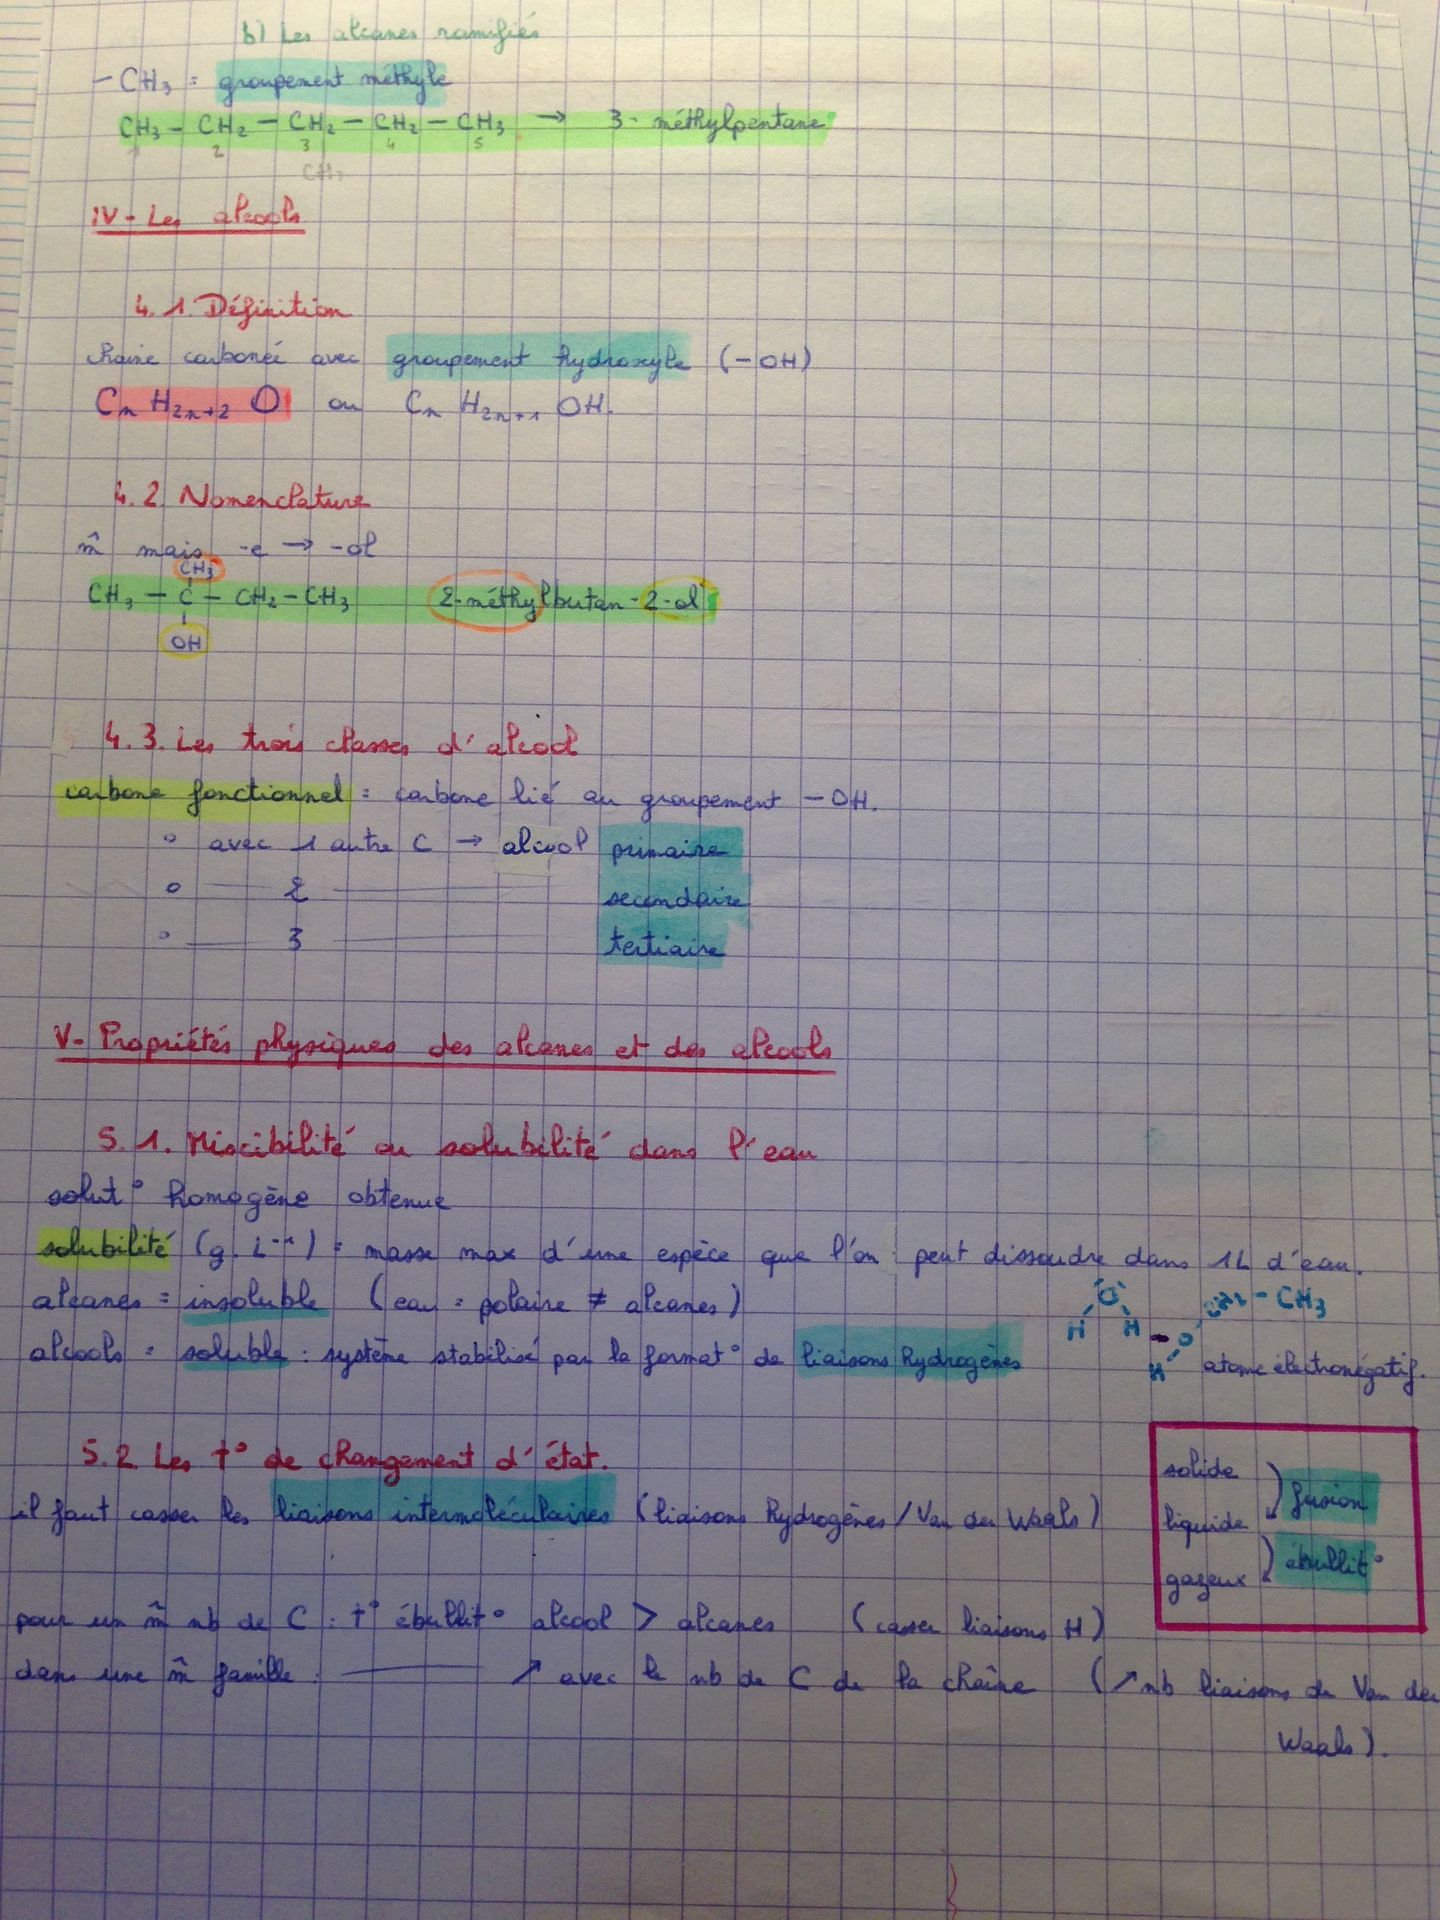 b) Les alcanes ramifiés
- CH3 = groupement méthyle
CH3 - CH2 - CH2 - CH2 - CH3 → 3-méthylpentane
2 3 4 5
CH3
IV- Les alcools
4.1. Définition
chaine carbonée avec groupement hydroxyle (-OH)
Cn H2n+2 O ou Cn H2n+1 OH.
4.2. Nomenclature
m̂ mais -e → -ol
CH3
CH3 - C - CH2 - CH3 2-méthylbutan-2-ol
OH
4.3. Les trois classes d'alcool
carbone fonctionnel = carbone lié au groupement -OH.
° avec 1 autre C → alcool primaire
° — 2 — secondaire
° — 3 — tertiaire
V- Propriétés physiques des alcanes et des alcools
5.1. Miscibilité ou solubilité dans l'eau
solut° homogène obtenue
solubilité (g.L⁻¹) = masse max d'une espèce que l'on peut dissoudre dans 1L d'eau.
alcanes = insoluble (eau = polaire ≠ alcanes)
O CH2 - CH3
H H - O
alcools = soluble : système stabilisé par la format° de liaisons hydrogènes
H atome électronégatif.
5.2 Les t° de changement d'état.
il faut casser les liaisons intermoléculaires (liaisons hydrogènes / Van der Waals)
solide
) fusion
liquide
) ébullit°
gazeux
pour un m̂ nb de C : t° ébullit° alcool > alcanes (casser liaisons H)
dans une m̂ famille : — ↗ avec le nb de C de la chaîne (↗ nb liaisons de Van der
Waals).